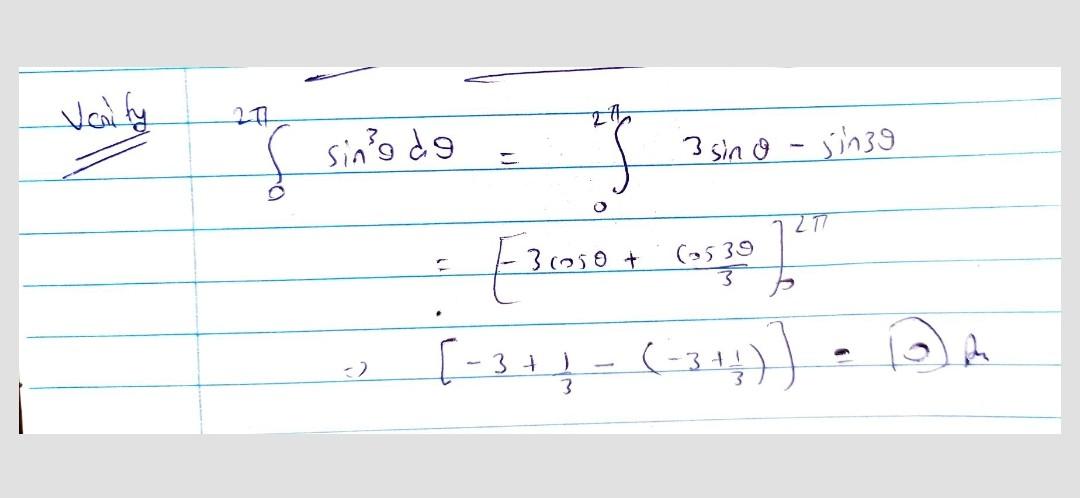 Verify
2π ∫ 0 sin³θ dθ = 2π ∫ 0 3 sin θ - sin3θ
= [-3 cosθ + cos3θ/3] 2π 0
⇒ [-3 + 1/3 - (-3 + 1/3)] = 0